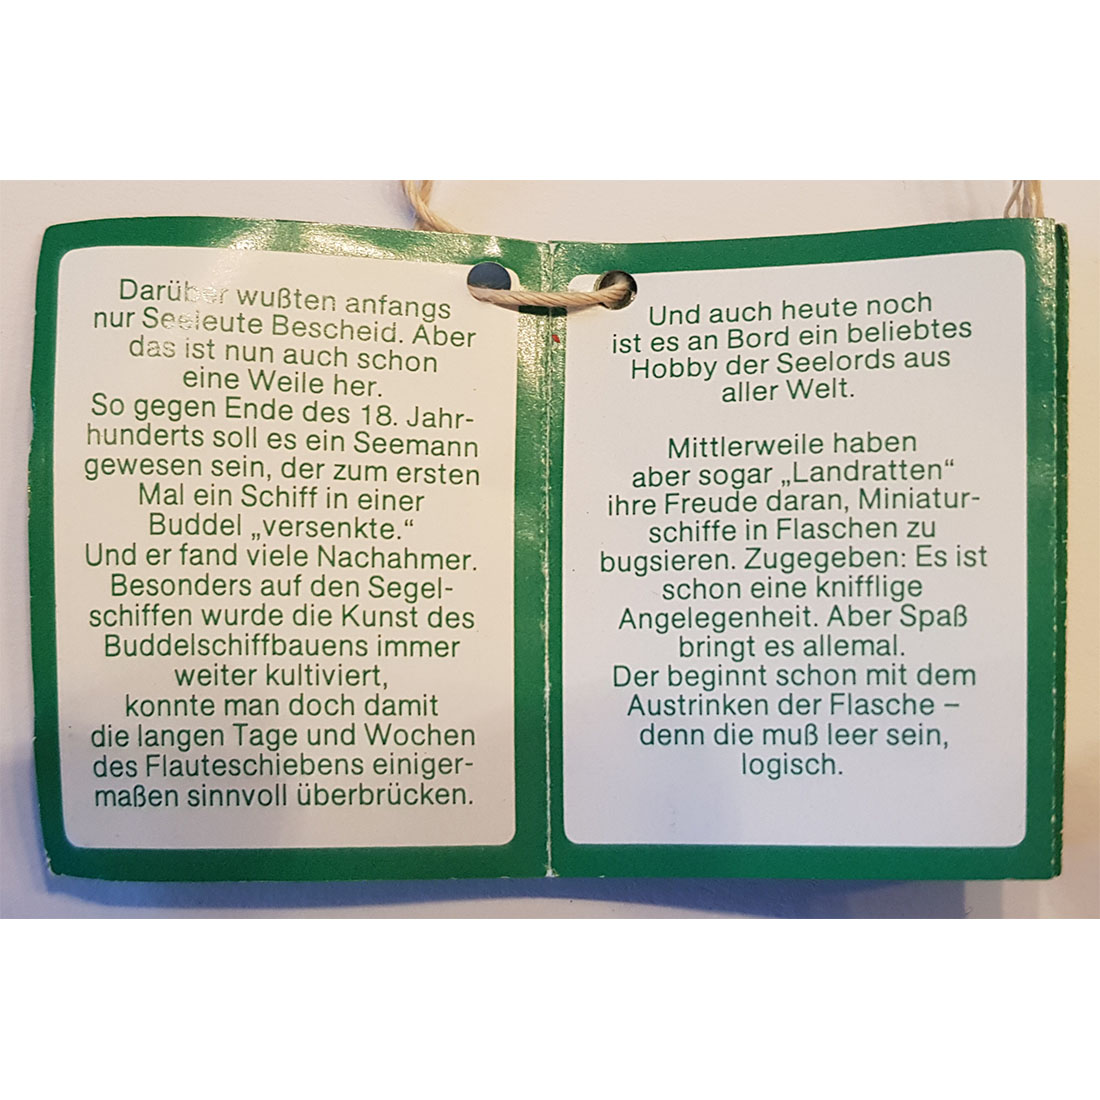 Darüber wußten anfangs
nur Seeleute Bescheid. Aber
das ist nun auch schon
eine Weile her.
So gegen Ende des 18. Jahr-
hunderts soll es ein Seemann
gewesen sein, der zum ersten
Mal ein Schiff in einer
Buddel „versenkte.“
Und er fand viele Nachahmer.
Besonders auf den Segel-
schiffen wurde die Kunst des
Buddelschiffbauens immer
weiter kultiviert,
konnte man doch damit
die langen Tage und Wochen
des Flauteschiebens einiger-
maßen sinnvoll überbrücken.
Und auch heute noch
ist es an Bord ein beliebtes
Hobby der Seelords aus
aller Welt.
Mittlerweile haben
aber sogar „Landratten“
ihre Freude daran, Miniatur-
schiffe in Flaschen zu
bugsieren. Zugegeben: Es ist
schon eine knifflige
Angelegenheit. Aber Spaß
bringt es allemal.
Der beginnt schon mit dem
Austrinken der Flasche –
denn die muß leer sein,
logisch.